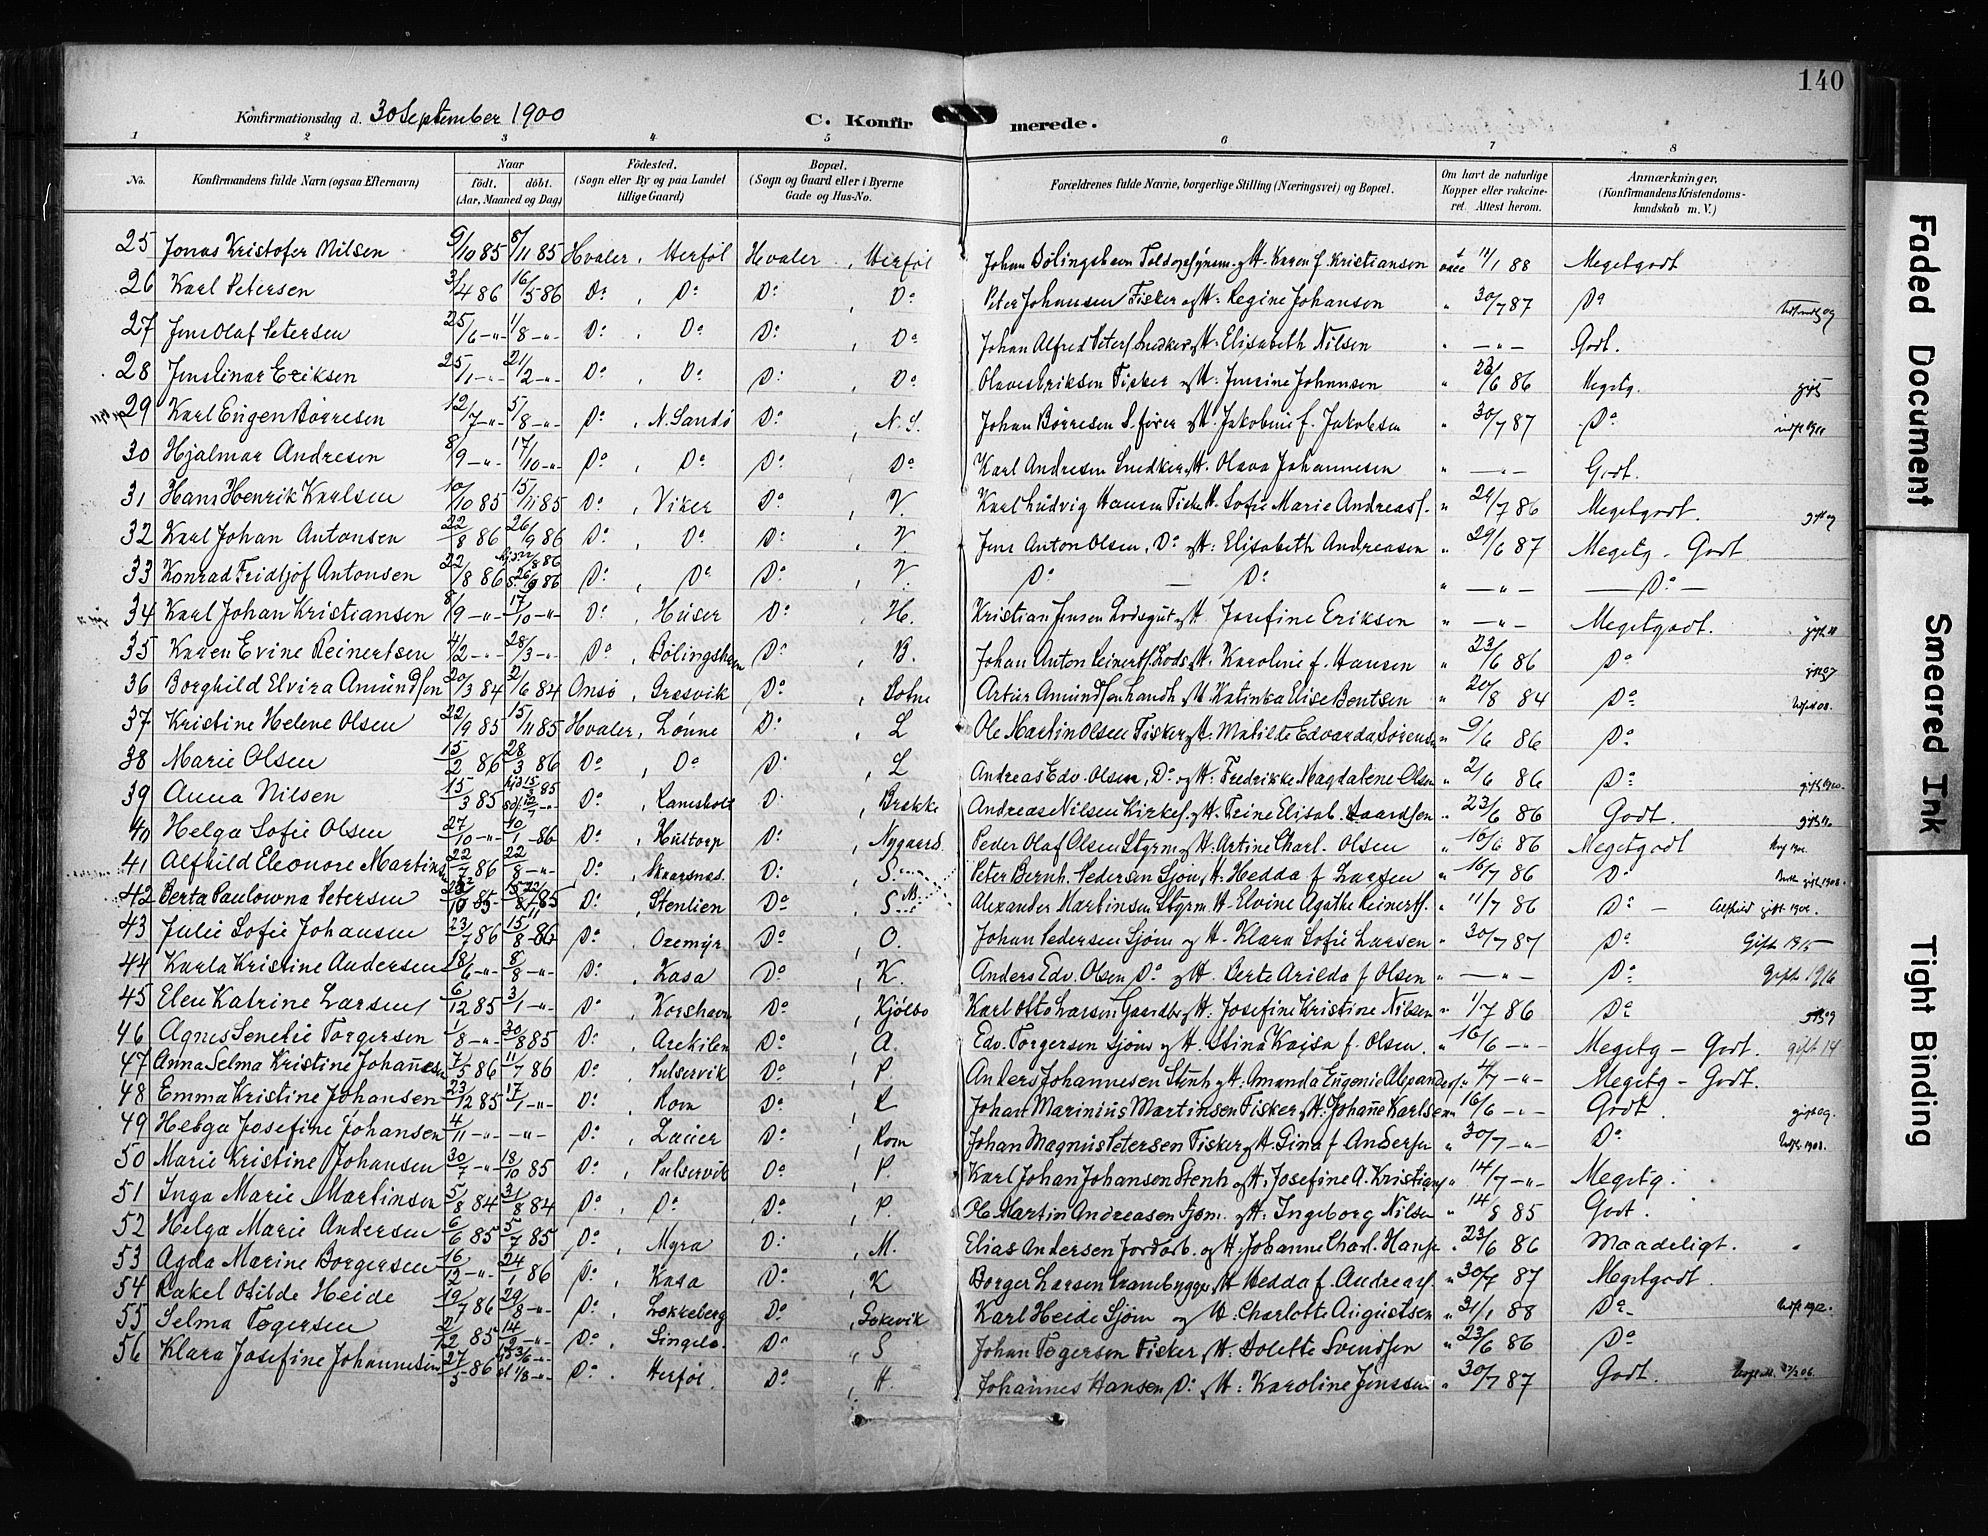 140
Konfirmationsdag d. 30 September 1900
C. Konfirmerede.
1 2 3 4 5 6 7 8
No. Konfirmandens fulde Navn (ogsaa Efternavn) Naar født. døbt. (Aar, Maaned og Dag) Fødested. (Sogn eller By og paa Landet tillige Gaard) Bopæl. (Sogn og Gaard eller i Byerne Gade og Hus-No. Forældrenes fulde Navne, borgerlige Stilling (Næringsvei) og Bopæl. Om havt de naturlige Kopper eller vakcineret. Attest herom. Anmærkninger, (Konfirmandens Kristendomskundskab m. V.)
25 Jonas Kristofer Nilsen 9/10 85 8/11 85 Hvaler, Herføl Hvaler, Herføl Johan Bölingshavn Karen f. Kristiansen 11/1 88 Megetgodt
26 Karl Petersen 3/4 86 16/5 86 Do, Do Do, Do Peter Johansen Fisker og H: Regine Johansen " 30/7 87 Do
27 Jens Olaf Petersen 25/6 -"- 1/8 -"- Do, Do Do, Do Johan Alfred Peters. Snedker og H: Elisabeth Nilsen " -"- Godt.
28 Jens Einar Eriksen 25/1 -"- 21/2 -"- Do, Do Do, Do Olaves Eriksen Fisker og H: Jensine Johansen " 23/6 86 Megetg.
29 Karl Eugen Børresen 12/7 -"- 5/8 -"- Do, N. Sandö Do, N. S. Johan Børresen S.fører og H. Jakobine f. Jakobsen " 30/7 87 Do
30 Hjalmar Andresen 8/9 -"- 17/10 -"- Do, Do Do, Do Karl Andresen Snedker og H. Olava Johannesen " -"- Godt.
31 Hans Henrik Karlsen 10/10 85 15/11 85 Do, Viker Do, V. Karl Ludvig Hansen Fisker H. Sofie Marie Andreas. " 24/7 86 Megetgodt.
32 Karl Johan Antonsen 22/8 86 26/9 86 Do, Do Do, V. Jens Anton Olsen, Do og H: Elisabeth Andreasen " 29/6 87 Megetg - Godt
33 Konrad Fridtjof Antonsen 22/8 86 26/9 86 Do, Do Do, V. Do - Do " -"- - Do -
34 Karl Johan Kristiansen 8/9 -"- 17/10 -"- Do, Huser Do, H. Kristian Jensen Lodsgut og H. Josefine Eriksen " -"- Megetgodt.
35 Karen Evine Reinertsen 4/2 -"- 28/3 -"- Do, Bölingshavn Do, B. Johan Anton Reinerts. Lods og H. Karoline f. Hansen " 23/6 86 Do
36 Borghild Elvira Amundsen 20/3 84 2/6 84 Onsö, Gressvik Do, Botne Artur Amundsen handl. og H Katinka Elise Bentsen " 20/8 84 Do
37 Kristine Helene Olsen 22/9 85 15/11 85 Hvaler, Lønne Do, L Ole Martin Olsen Fisker og H. Matilde Edvarda Sörensen " 9/6 86 Do
38 Marie Olsen 15/2 86 28/3 86 Do, Do Do, L Andreas Edv. Olsen, Do og H: Fredrikke Magdalene Olsen " 2/6 86 Do
39 Anna Nilsen 15/3 85 Do, Ramshold Do, Brække Andreas Nilsen Kirkes. og H. Trine Elisab. " 23/6 86 Godt.
40 Helga Sofie Olsen 27/10 -"- 10/1 86 Do, Hultorp Do, Nygaard. Peder Olaf Olsen Styrm og H: Artine Charl. Olsen " 10/6 86 Megetgodt
41 Alfhild Eleonore Martinsen 22/7 86 22/8 -"- Do, Skaarsnes. Do, S. Peter Bernh. Pedersen Sjöm. H: Hedda f Larsen " 16/7 86 Do
42 Berta Paulowna Petersen 10 85 Do, Stenlien Do, S Alexander Martinsen Styrm H. Elvine Agathe Reinerts. " 11/7 86 Do - Alfhild gift 1902.
43 Julie Sofie Johansen 23/7 86 15/8 86 Do, Oremyr Do, O. Johan Pedersen Sjöm og H. Klara Sofie Larsen " 30/7 87 Do Gift 1915
44 Karla Kristine Andersen 18/6 -"- 8/8 -"- Do, Kasa Do, K. Anders Edv. Olsen Do og H. Berte Arilda f Olsen " -"- Do Gift 1916
45 Elen Katrine Larsen 6/12 85 3/1 -"- Do, Korshavn Do, Kjölbo Karl Otto Larsen Gaardbr og H. Josefine Kristine Nilsen " 1/7 86 Do
46 Agnes Senelie Torgersen 1/8 -"- 30/8 85 Do, Arekilen Do, A. Edv. Torgersen Sjöm og H. Stina Kaisa f. Olsen. " 16/6 -"- Megetg - Godt. gift 14
47 Anna Selma Kristine Johannesen 7/5 86 11/7 86 Do, Pulservik Do, P. Anders Johannesen Stenh og H: Amanda Eugenie Alexanders. " 4/7 -"- Megetg - Godt.
48 Emma Kristine Johansen 23/12 85 17/1 -"- Do, Rom Do, R Johan Marinius Martinsen Fisker og H: Johanne Karlsen " 16/6 -"- Godt.
49 Helga Josefine Johansen 4/11 -"- -"- Do, Lauer Do, Rom Johan Magnus Petersen Fisker og H Gina f Andersen " 30/7 -"- Do
50 Marie Kristine Johansen 30/7 -"- 18/10 85 Do, Pulservik Do, P. Karl Johan Johansen Stenh og H, Josefine A. Kristians " 14/7 -"- Megetg.
51 Inga Marie Martinsen 5/8 84 31/8 84 Do, Do Do, P. Ole Martin Andreasen Sjöm. og H: Ingeborg Nilsen " 14/8 85 Godt.
52 Helga Marie Andersen 6/6 85 5/7 85 Do, Myra Do, M. Elias Andersen Jordarb. og H. Johanne Charl. Hans " 23/6 86 Maadeligt.
53 Agda Marine Borgersen 16/12 -"- 24/1 86 Do, Kasa Do, K Borger Larsen og H Hedda f. Andreas. " 30/7 87 Megetgodt.
54 Rakel Otilde Heide 19/7 86 29/8 -"- Do, Lökkeberg Do, Gökevik Karl Heide Sjöm og H: Charlotte Augustsen " 31/1 88 Do
55 Selma Tøgersen 2/12 85 14/2 -"- Do, Singelö. Do, S Johan Tøgersen Fisker og H. Dolette Svendsen " 23/6 86 Do
56 Klara Josefine Johannesen 27/5 86 1/8 -"- Do, Herföl. Do, H. Johannes Hansen Do og H: Karoline Jenssen " 30/7 87 Godt.
Faded Document
Smeared Ink
Tight Binding